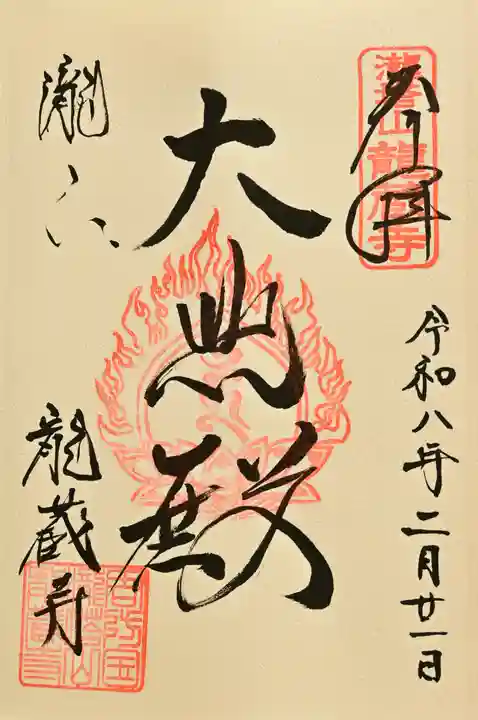 奉拝
瀧塔山龍蔵寺
令和八年二月廿一日
大悲殿
瀧
龍蔵寺